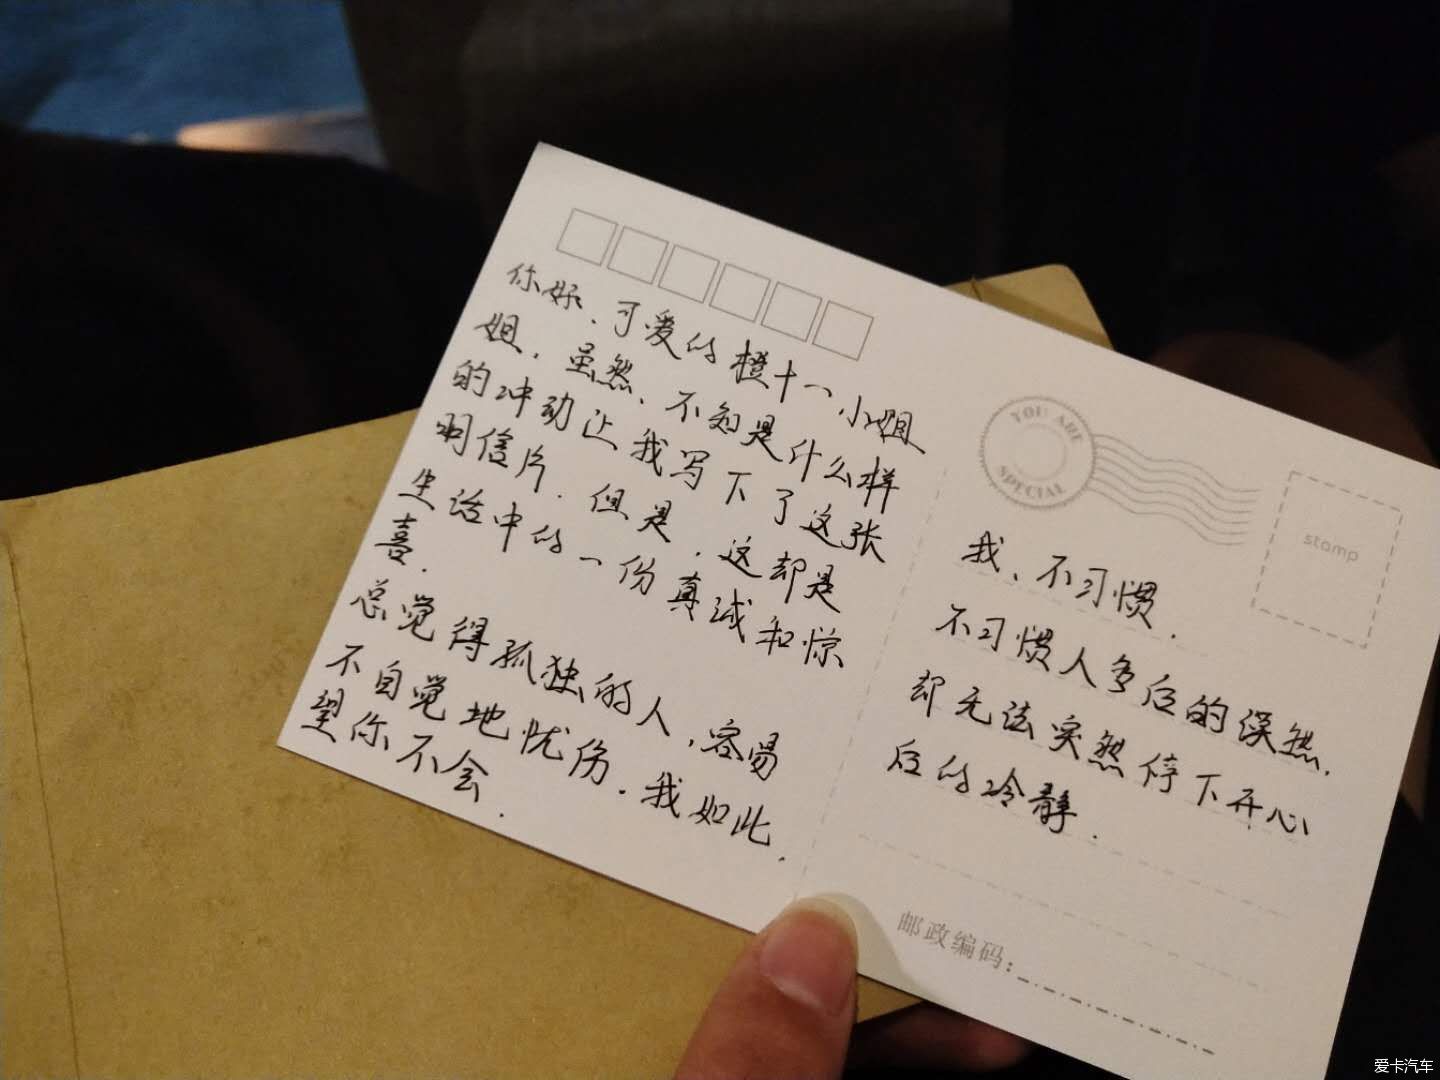 你好、可爱的橙十一小姐
姐，虽然、不知是什么样
的冲动让我写下了这张
明信片．但是．这却是
生活中的一份真诚和惊
喜．
总觉得孤独的人，容易
不自觉地忧伤．我如此．
望你不会．
YOU ARE
SPECIAL
stamp
我、不习惯．
不习惯人多后的误然．
却无法突然停下开心
后的冷静．
邮政编码：
爱卡汽车